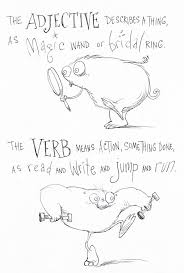 THE ADJECTIVE DESCRIBES A THING,
AS Magic WAND OR bridal RING.
THE VERB MEANS ACTION, SOMETHING DONE,
AS read AND write AND jump AND run.